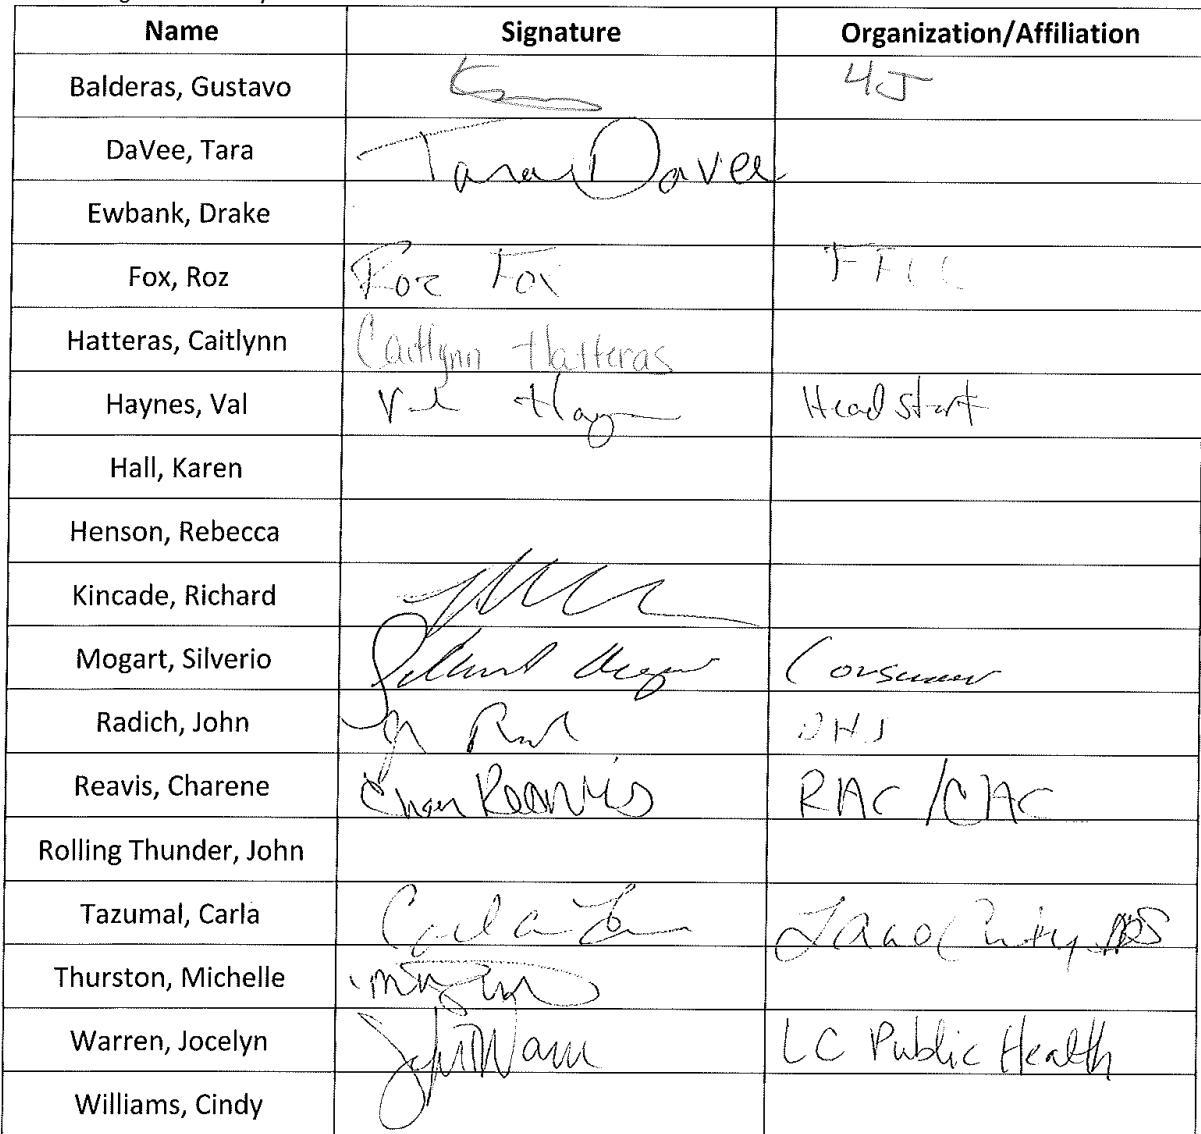 Name Signature Organization/Affiliation
Balderas, Gustavo 4J
DaVee, Tara Tara DaVee
Ewbank, Drake
Fox, Roz Roz Fox
Hatteras, Caitlynn Caitlynn Hatteras
Haynes, Val Val Hayn Head start
Hall, Karen
Henson, Rebecca
Kincade, Richard
Mogart, Silverio Consumer
Radich, John DHS
Reavis, Charene Char Reavis RAC/CAC
Rolling Thunder, John
Tazumal, Carla Carla Lane County
Thurston, Michelle
Warren, Jocelyn LC Public Health
Williams, Cindy